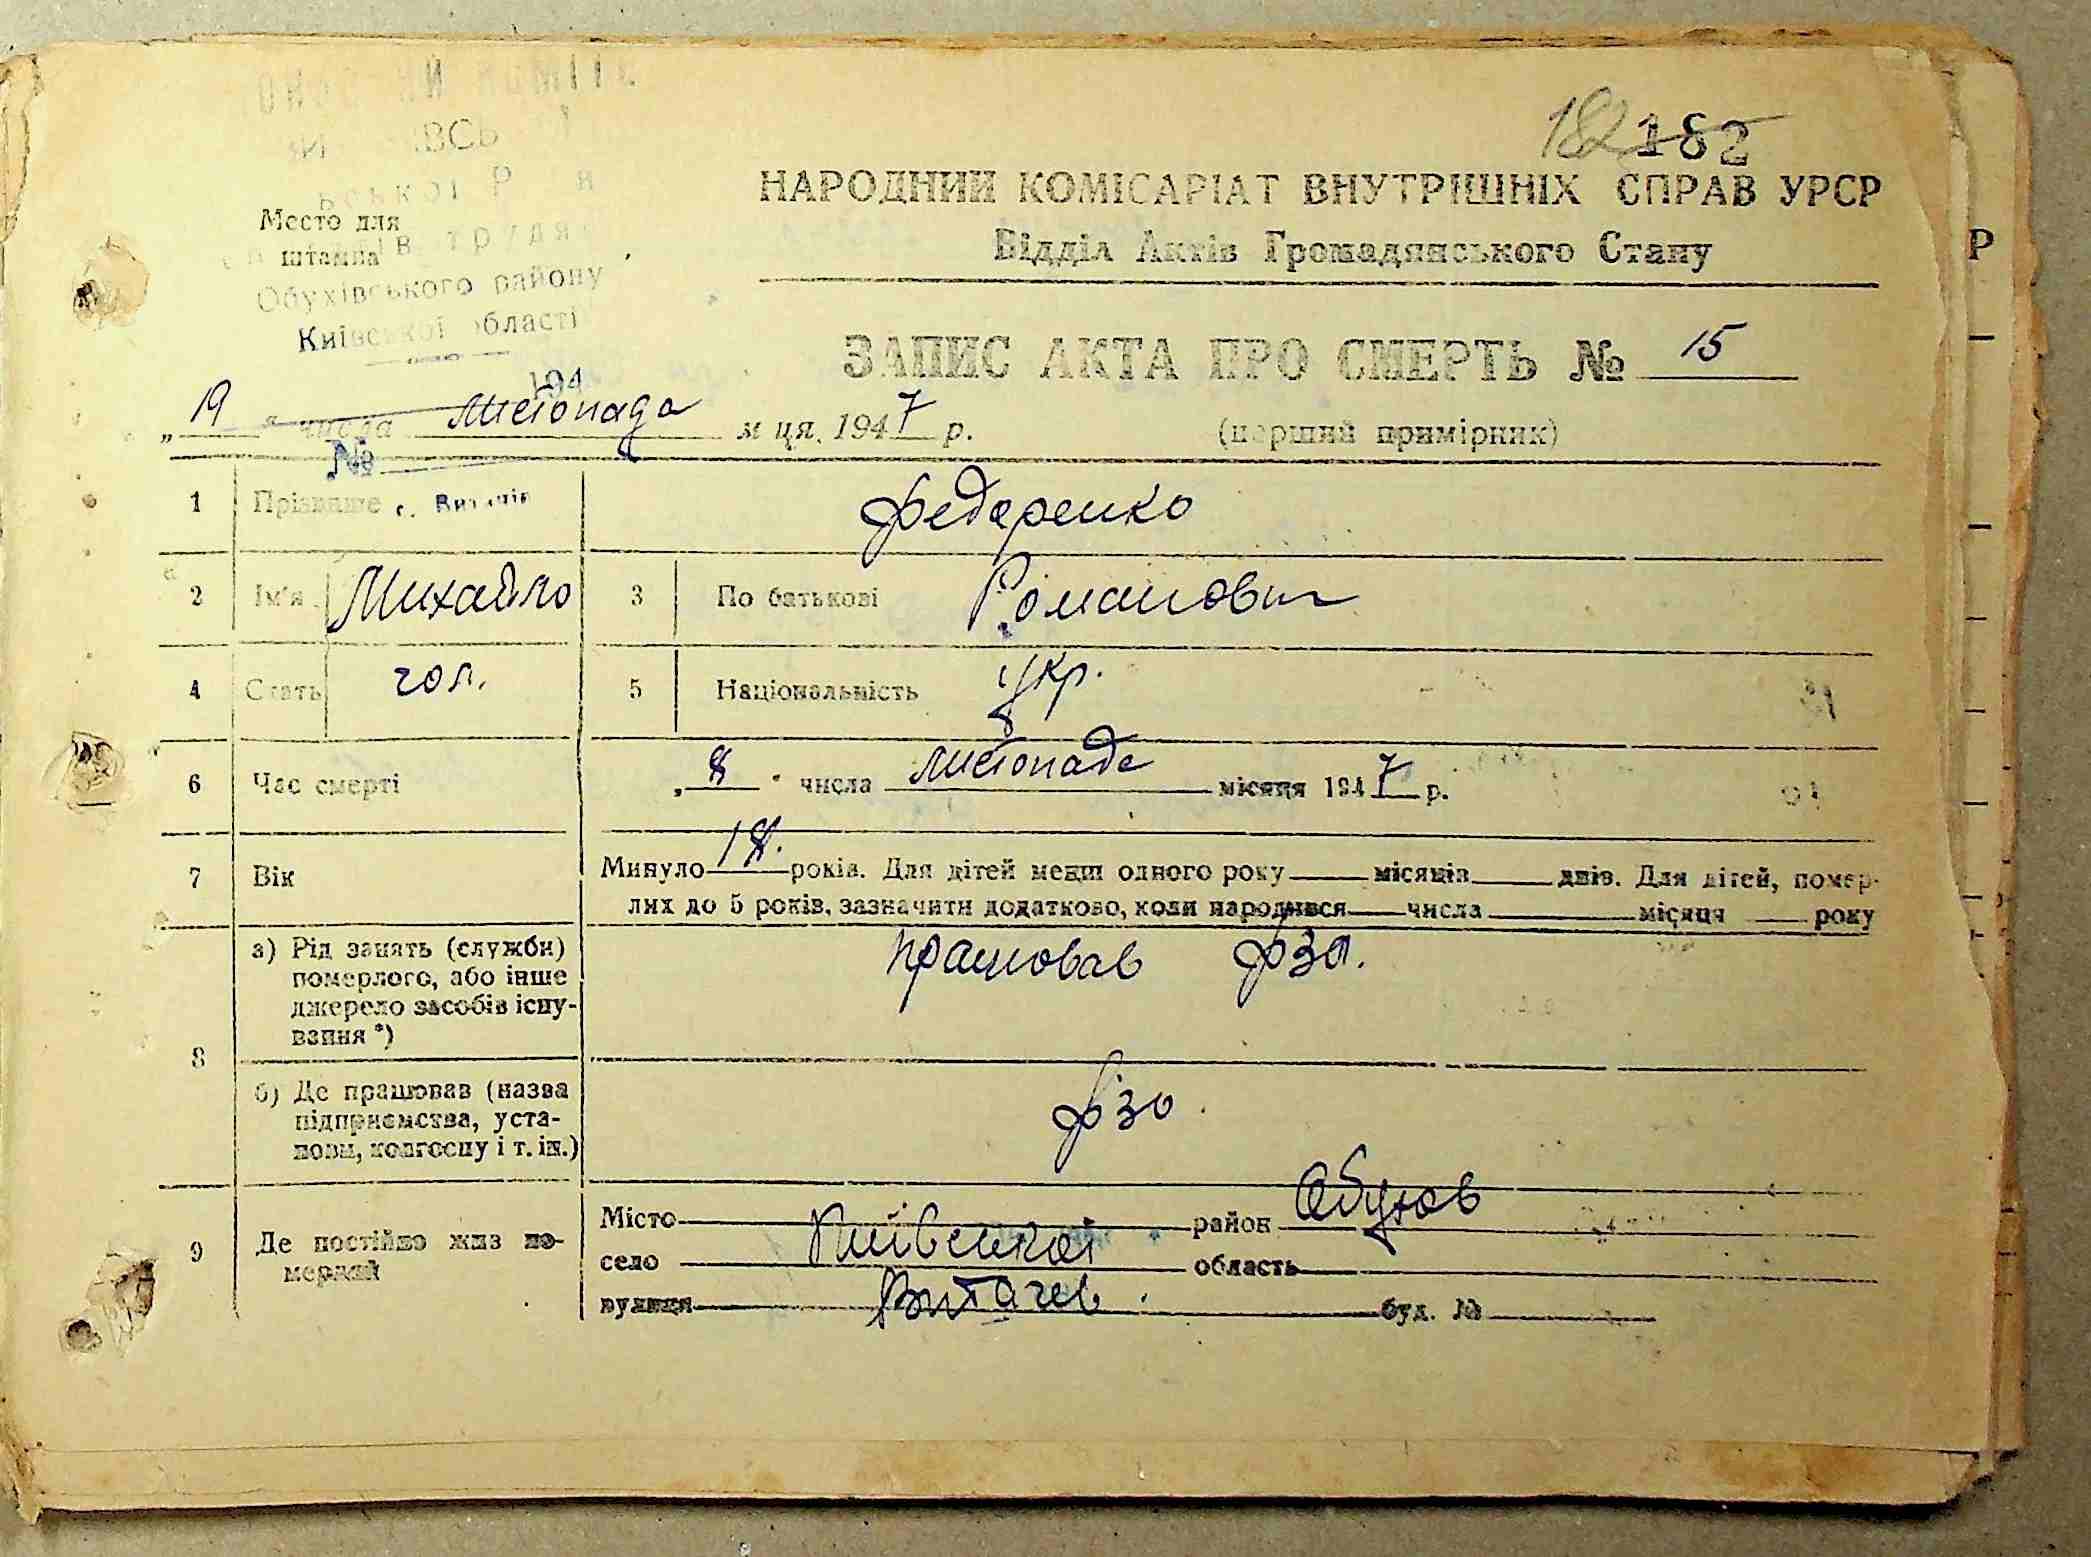 182 182
НАРОДНИЙ КОМІСАРІАТ ВНУТРІШНІХ СПРАВ УРСР
Відділ Актів Громадянського Стану
Место для
штампа
Обухівського району
Київської області
194
№
с. Витачів
ЗАПИС АКТА ПРО СМЕРТЬ № 15
„ 19 " числа листопада м ця. 1947 р. (перший примірник)
1 Прізвище Федоренко
2 Ім'я Михайло 3 По батькові Романович
4 Стать чол. 5 Національність Укр.
6 Час смерті „ 8 " числа листопада місяця 1947 р.
7 Вік Минуло 18. років. Для дітей менш одного року місяців днів. Для дітей, помер-
лих до 5 років, зазначити додатково, коли народився числа місяця року
8 а) Рід занять (служби) померлого, або інше джерело засобів існування *) працював ФЗО.
б) Де працював (назва підприємства, установи, колгоспу і т. ін.) ФЗО.
9 Де постійно жив померлий
Місто район Обухов
село Київської область
вулиця Витачев. буд. №